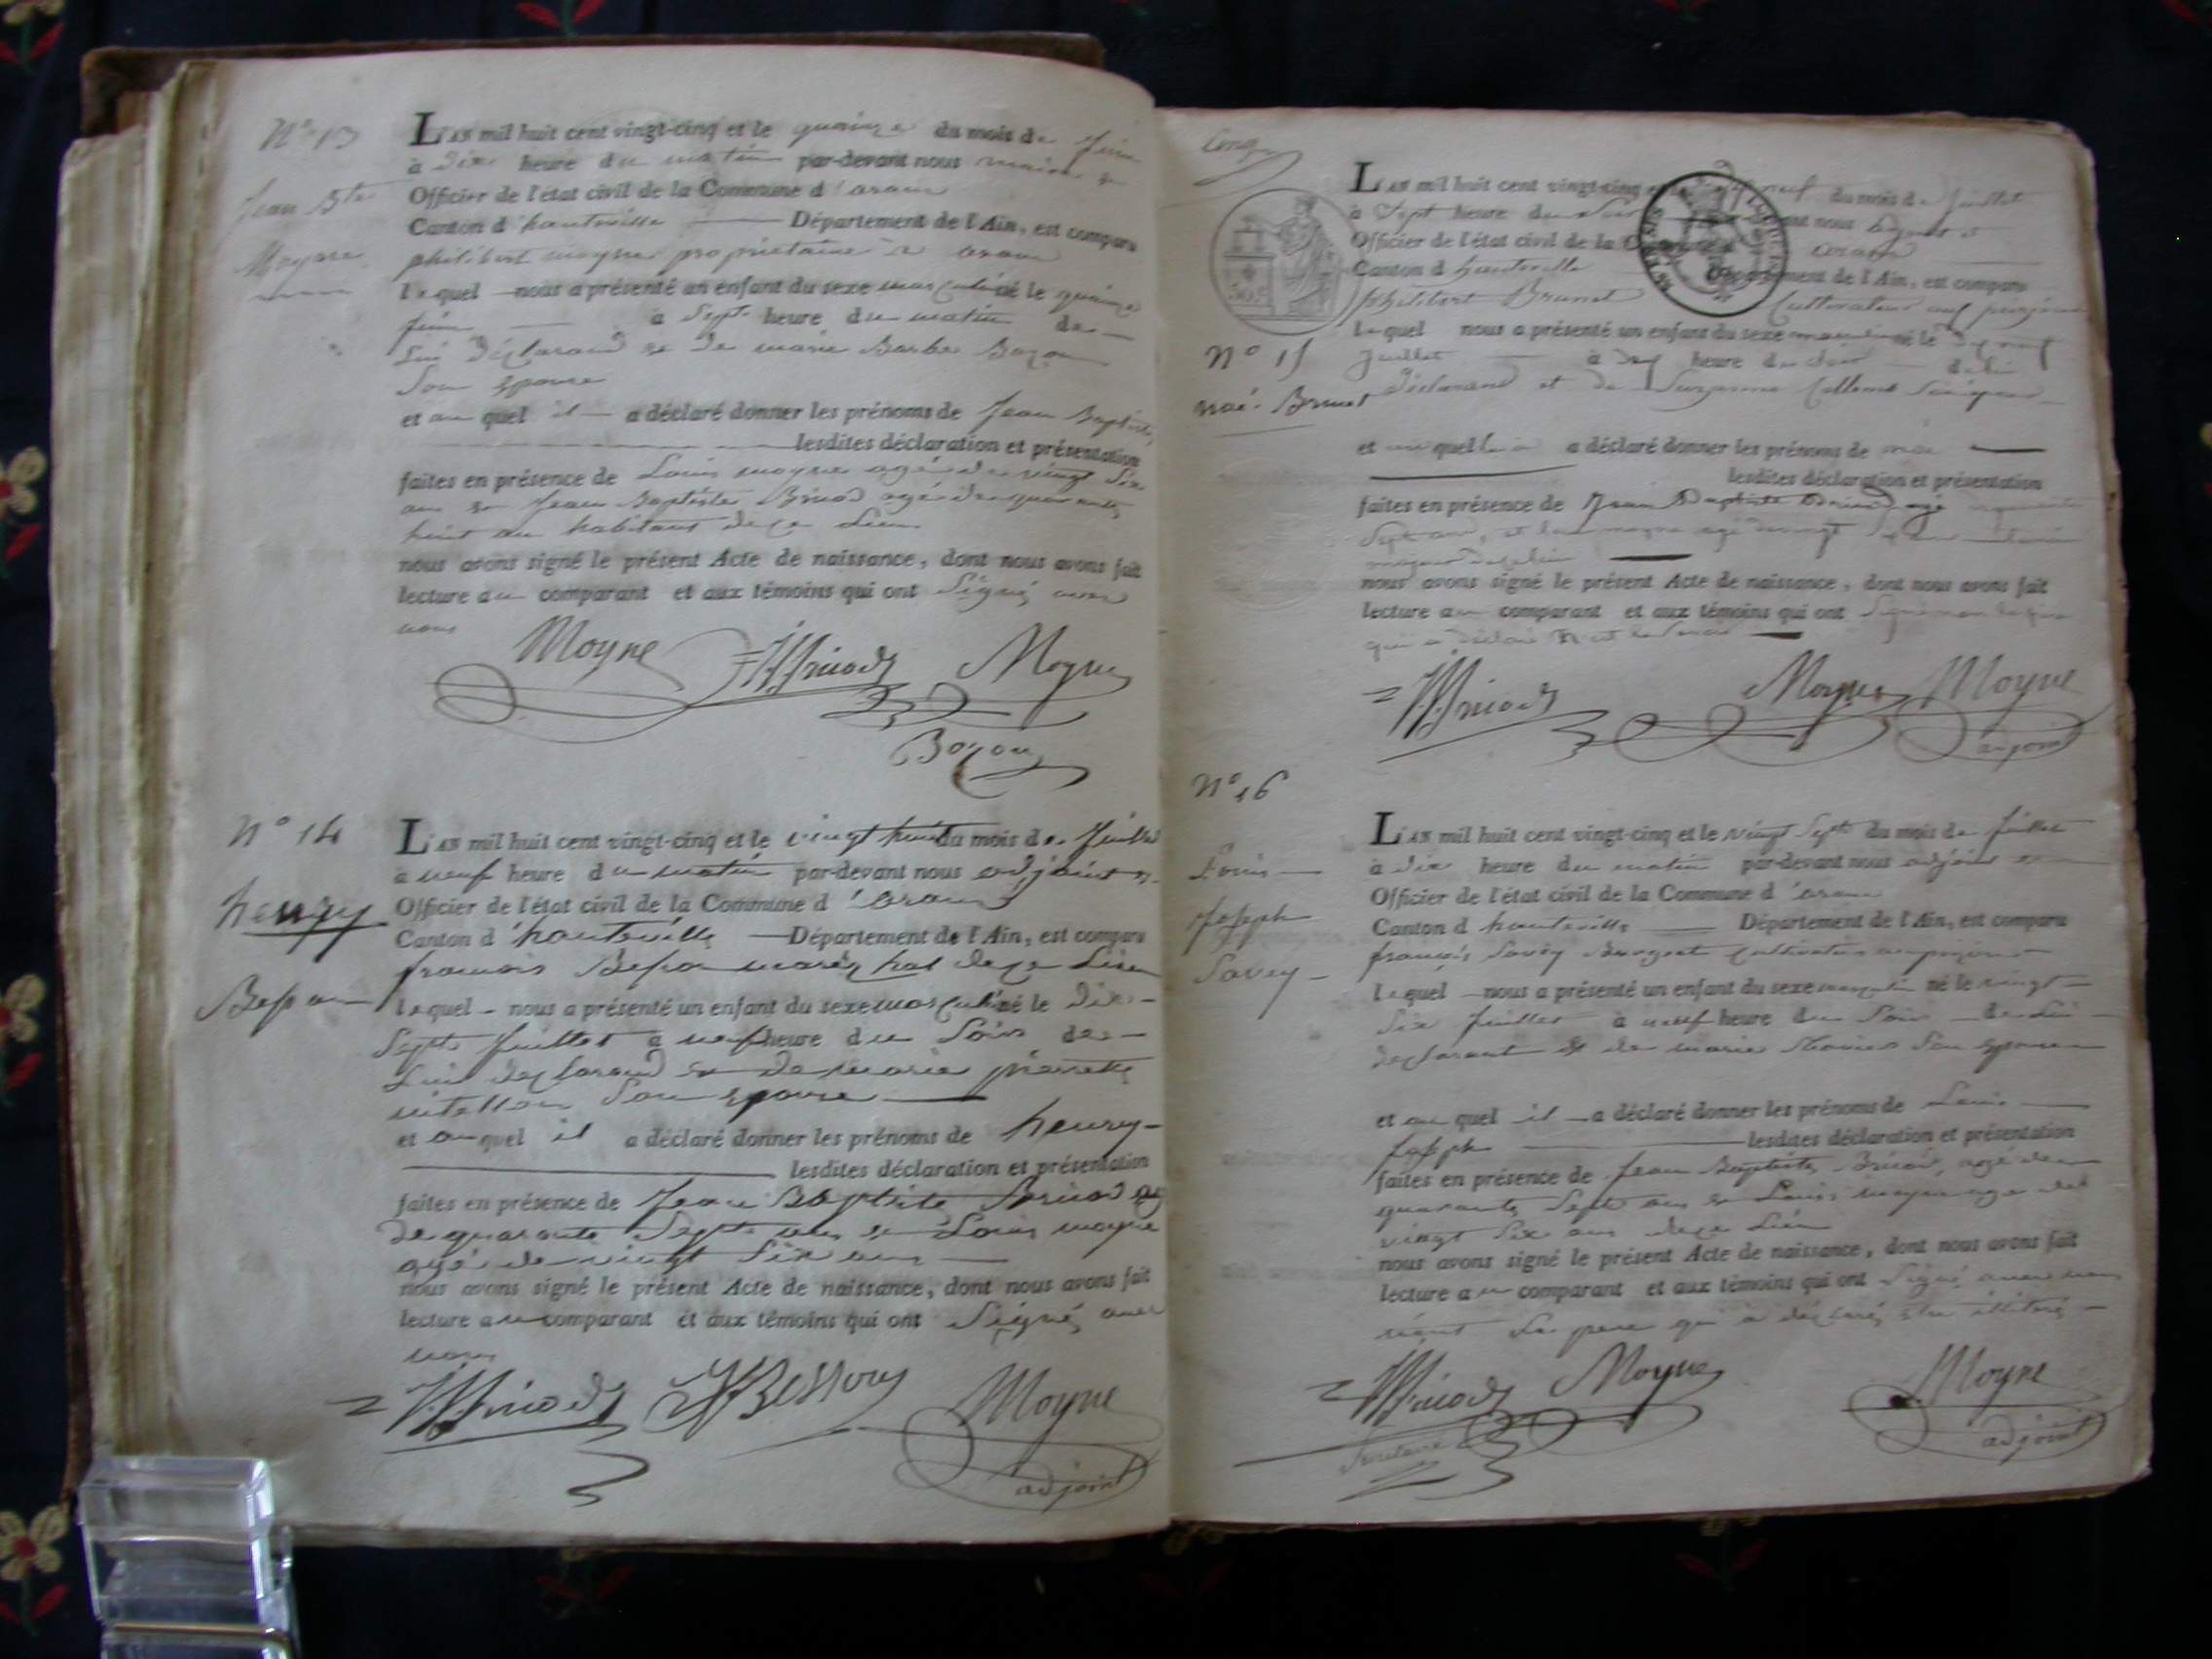 N° 13
Jean Bte
Moyne
L'AN mil huit cent vingt-cinq et le quinze du mois de Juin
à Dix heure du matin par-devant nous maire
Officier de l'état civil de la Commune d'aranc
Canton d'hauteville Département de l'Ain, est comparu
philibert moyne propriétaire à aranc
lequel nous a présenté un enfant du sexe masculin né le quinze
Juin à Sept heure du matin de
Lui déclarand et de marie Barbe Bozon
Son epouse
et au quel il a déclaré donner les prénoms de Jean Baptiste
lesdites déclaration et présentation
faites en présence de Louis moyne agé de vingt Six
ans et Jean Baptiste Brisod agé de quarante
huit an habitant de ce Lieu
nous avons signé le présent Acte de naissance, dont nous avons fait
lecture au comparant et aux témoins qui ont Signé avec
nous
Moyne Moyne
Bozon
N° 14
henry
Besson
L'AN mil huit cent vingt-cinq et le vingt huit du mois de Juillet
à neuf heure du matin par-devant nous adjoint
Officier de l'état civil de la Commune d'aranc
Canton d'hauteville Département de l'Ain, est comparu
francois Besson marechal de ce Lieu
lequel nous a présenté un enfant du sexe masculin né le Dix
Sept Juillet à neuf heure du Soir de
Lui declarand et de marie pierrette
Son epouse
et au quel il a déclaré donner les prénoms de henry
lesdites déclaration et présentation
faites en présence de Jean Baptiste Brisod
de quarante Sept ans et Louis moyne
agé de vingt Six ans
nous avons signé le présent Acte de naissance, dont nous avons fait
lecture au comparant et aux témoins qui ont Signé avec
nous
Besson Moyne
adjoint
L'AN mil huit cent vingt-cinq neuf du mois de Juillet
à Sept heure du Soir nous
Officier de l'état civil de la aranc
Canton d hauteville Département de l'Ain, est comparu
philibert Brunet Cultivateur
lequel nous a présenté un enfant du sexe masculin né le
N° 15
Juillet à heure du Soir de lui
noé Brunet
déclarand et de Suzanne
et a déclaré donner les prénoms de noé
lesdites déclaration et présentation
faites en présence de Jean Baptiste Brisod agé
Sept ans, et agé de vingt
nous avons signé le présent Acte de naissance, dont nous avons fait
lecture au comparant et aux témoins qui ont Signé
qui a déclaré
Moyne Moyne
adjoint
N° 16
Louis
Joseph
Savey
L'AN mil huit cent vingt-cinq et le vingt Sept du mois de Juillet
à dix heure du matin par-devant nous adjoint
Officier de l'état civil de la Commune d'aranc
Canton d hauteville Département de l'Ain, est comparu
françois Savey Cultivateur
lequel nous a présenté un enfant du sexe masculin né le vingt
Six Juillet à neuf heure du Soir de Lui
declarant et de marie Son epouse
et au quel il a déclaré donner les prénoms de Louis
Joseph lesdites déclaration et présentation
faites en présence de Jean Baptiste Brisod, agé de
quarante Sept ans et Louis moyne agé de
vingt Six ans de ce Lieu
nous avons signé le présent Acte de naissance, dont nous avons fait
lecture au comparant et aux témoins qui ont Signé avec nous
Le pere qui a déclaré
Moyne Moyne
Secretaire adjoint